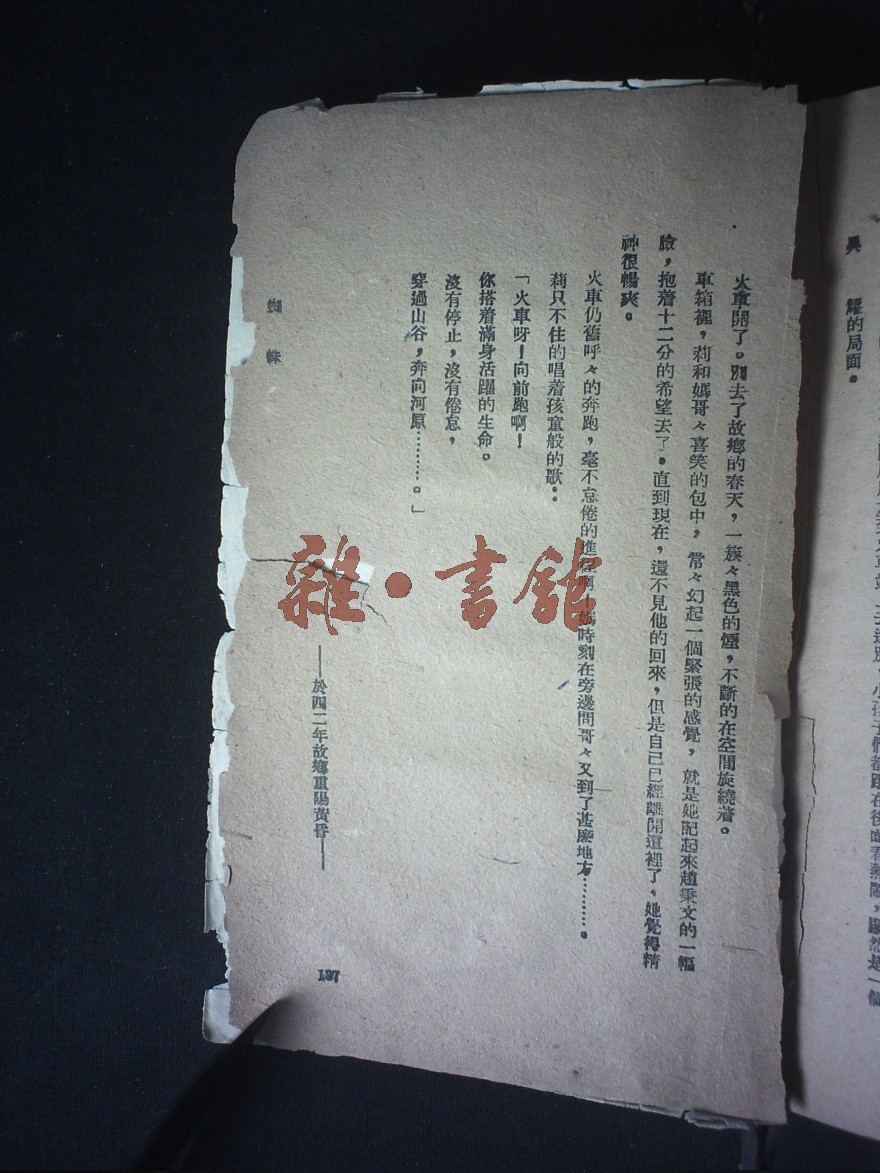 火車開了。別去了故鄉的春天，一簇々黑色的煙，不斷的在空間旋繞着。
車箱裡，莉和媽哥々喜笑的包中，常々幻起一個緊張的感覺，就是她記起來趙秉文的一幅
臉，抱着十二分的希望去了。直到現在，還不見他的回來，但是自己已經離開這裡了、她覺得精
神很暢爽。
火車仍舊呼々的奔跑，毫不怠倦的進
時刻在旁邊問哥々又到了甚麽地方………。
莉只不住的唱着孩童般的歌：
「火車呀！向前跑啊！
你搭着滿身活躍的生命。
沒有停止，沒有倦怠，
穿過山谷，奔向河原………。」
——於四二年故鄉重陽黃昏——
137
雜·書館
耀的局面。